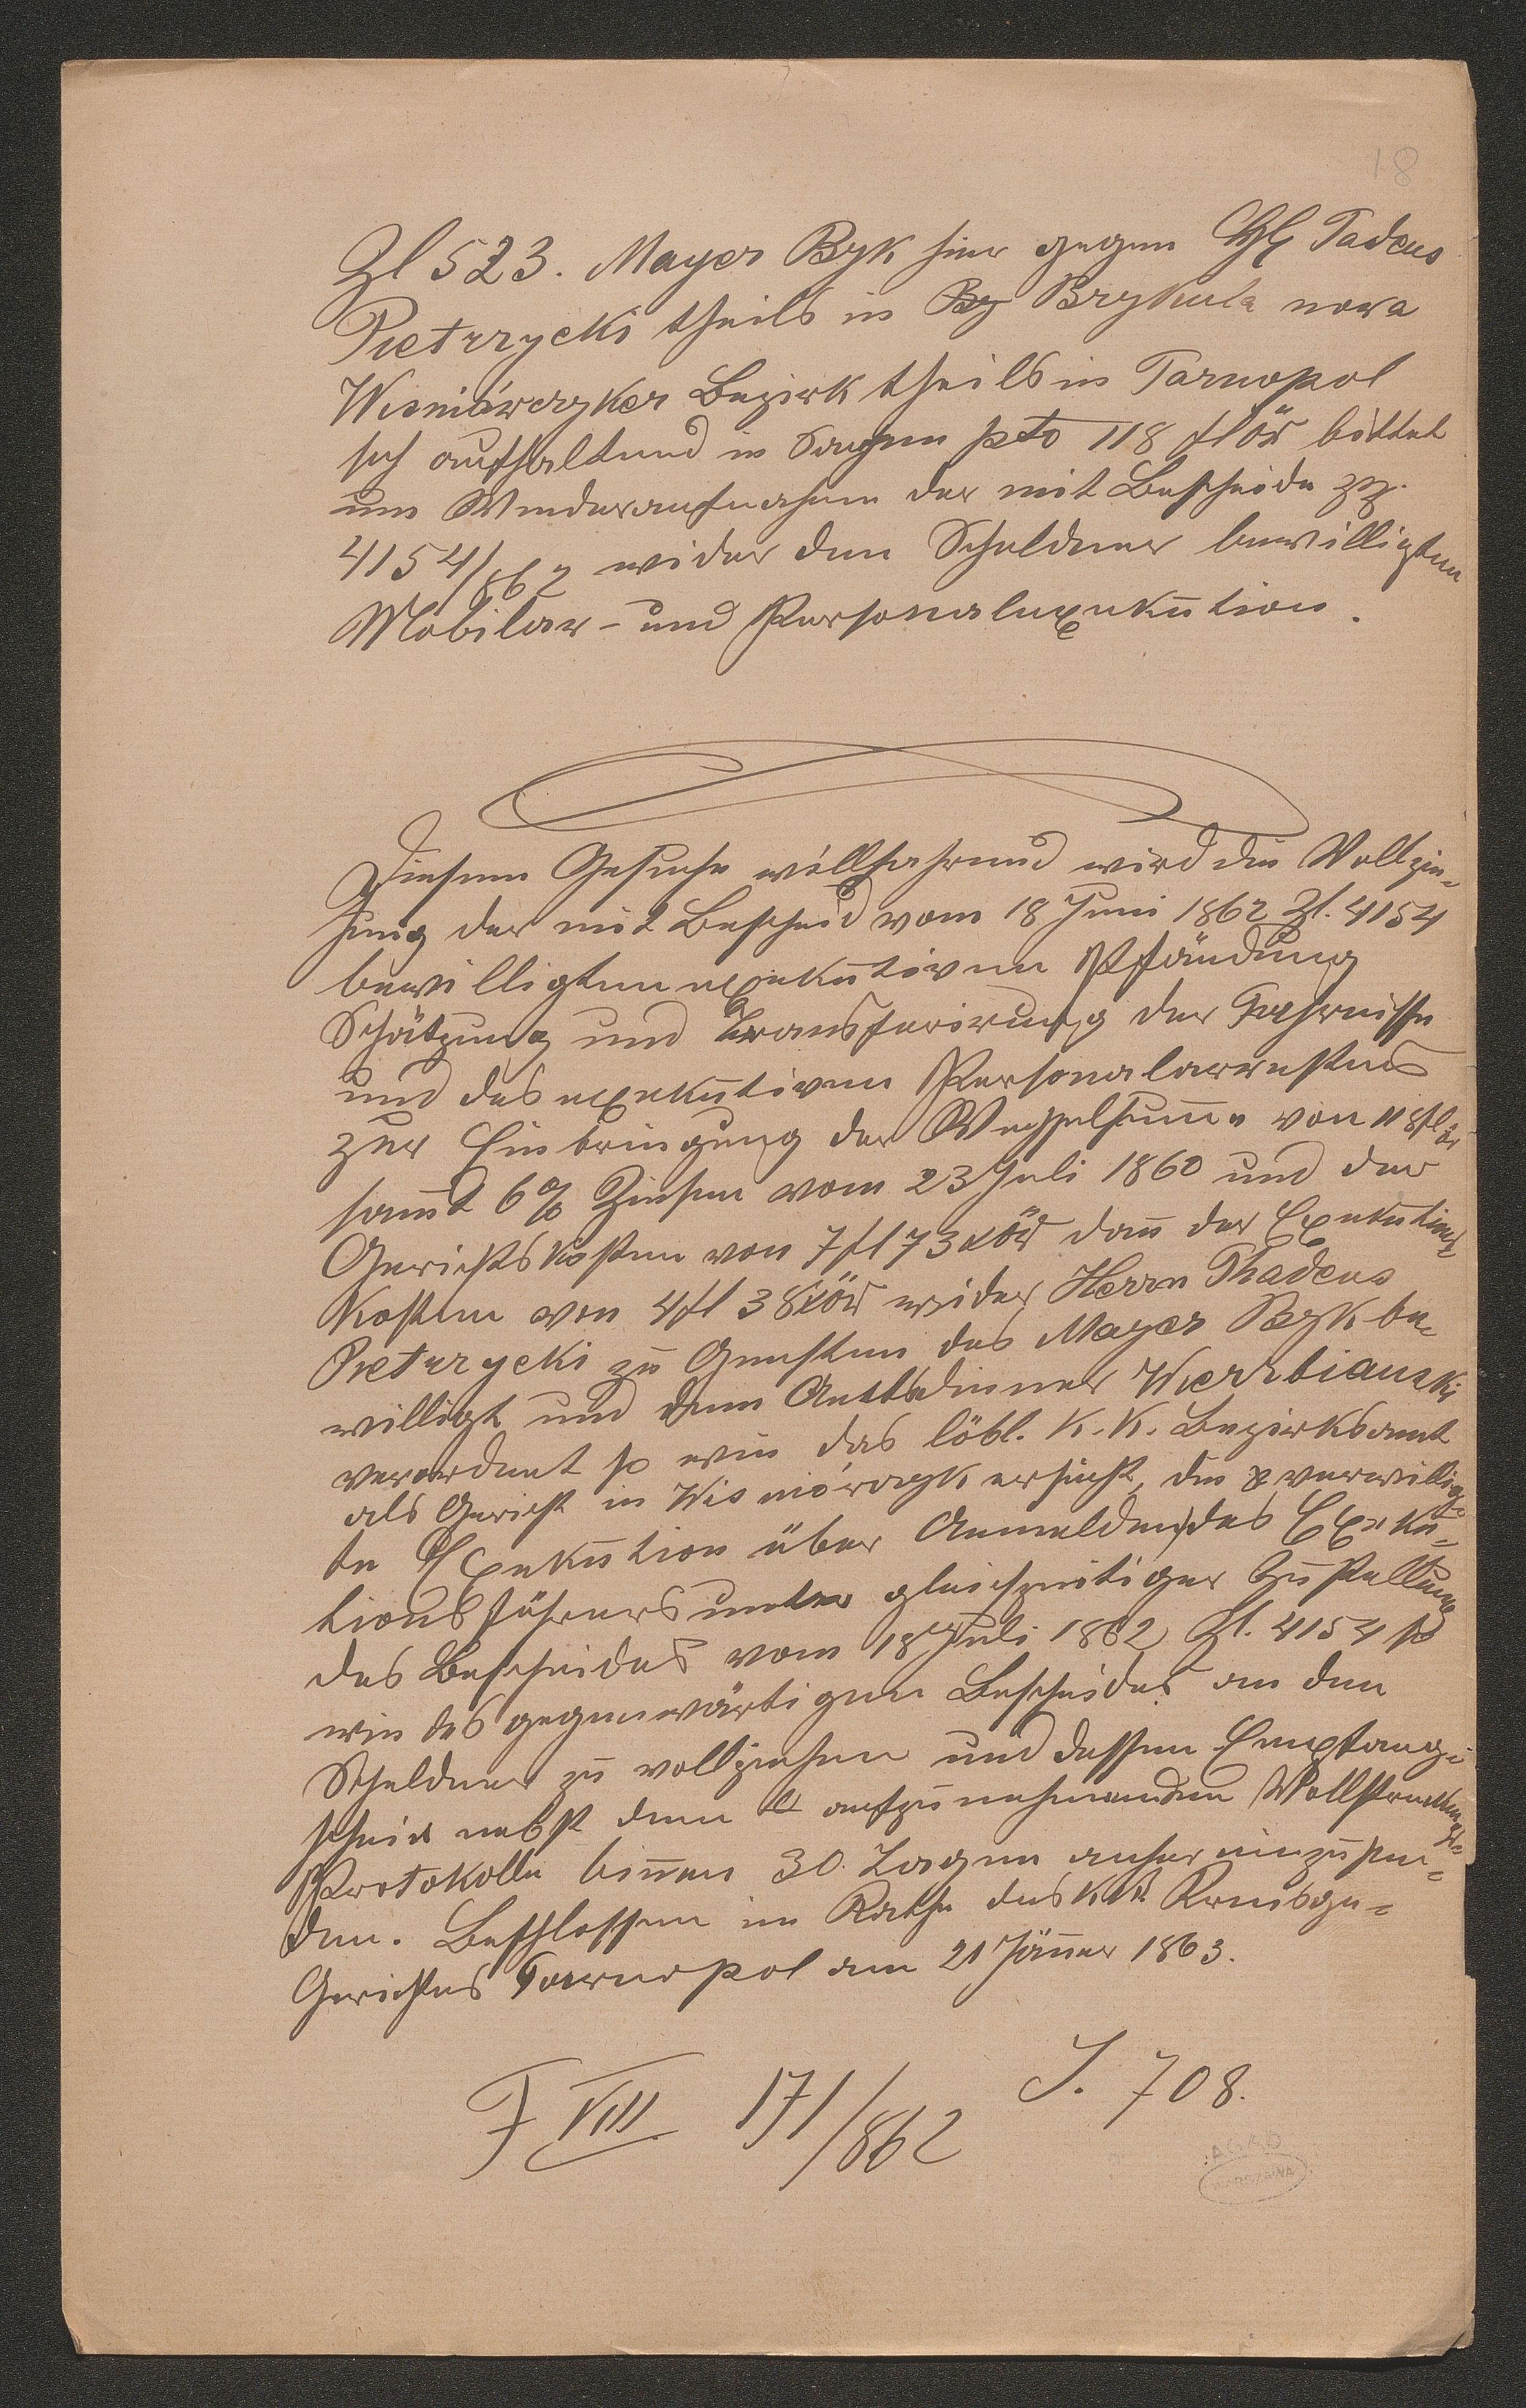 18
Zl 523. Mayer Byk hier gegen HH Tadeus
Pietrzycki theils in By Brykula nowa
Wisniówczyker Bezirk theils in Tarnopol
sich aufhaltend in Sachen pto 118 fl öW bittet
um Wiederaufnahme der mit Bescheide Z.
4154/862 wider den Schuldner bewilligten
Mobilar- und Personalexekution.
Diesem Gesuche willfahrend wird die Vollzie-
hung der mit Bescheid vom 18 Juni 1862 Zl. 4154
bewilligten exekutiven Pfändung
Schätzung und Transferirung der Fahrnisse
und des exekutiven Personalarrestes
zur Einbringung der Wechselsumme von 118 fl ö
sammt 6% Zinsen vom 23 Juli 1860 und der
Gerichtskosten von 7 fl 73 x öW dann der Exekutions-
Kosten von 4 fl 38 x öW wider Herrn Thadeus
Pietrzycki zu Gunsten des Mayer Byk be-
willigt und dem Amtsdiener Wierzbianski
verordnet so wie das löbl. K. K. Bezirksamt
als Gericht in Wisniówczyk ersucht, die verwillig-
te Exekution über Anmelden des Exeku-
tionsführers unter gleichzeitiger Zustellung
des Bescheides vom 18 Juli 1862 Zl. 4154 so
wie des gegenwärtigen Bescheides an den
Schuldner zu vollziehen und dessen Empfang-
schein nebst dem aufzunehmenden Vollstreckungs-
Protokolle binnen 30. Tagen anher einzusen-
den. Beschlossen im Rathe des kk Kreisge-
Gerichtes Tarnopol am 21 Jänner 1863.
F VIII 171/862 J. 708.
AGAD
WARSZAWA